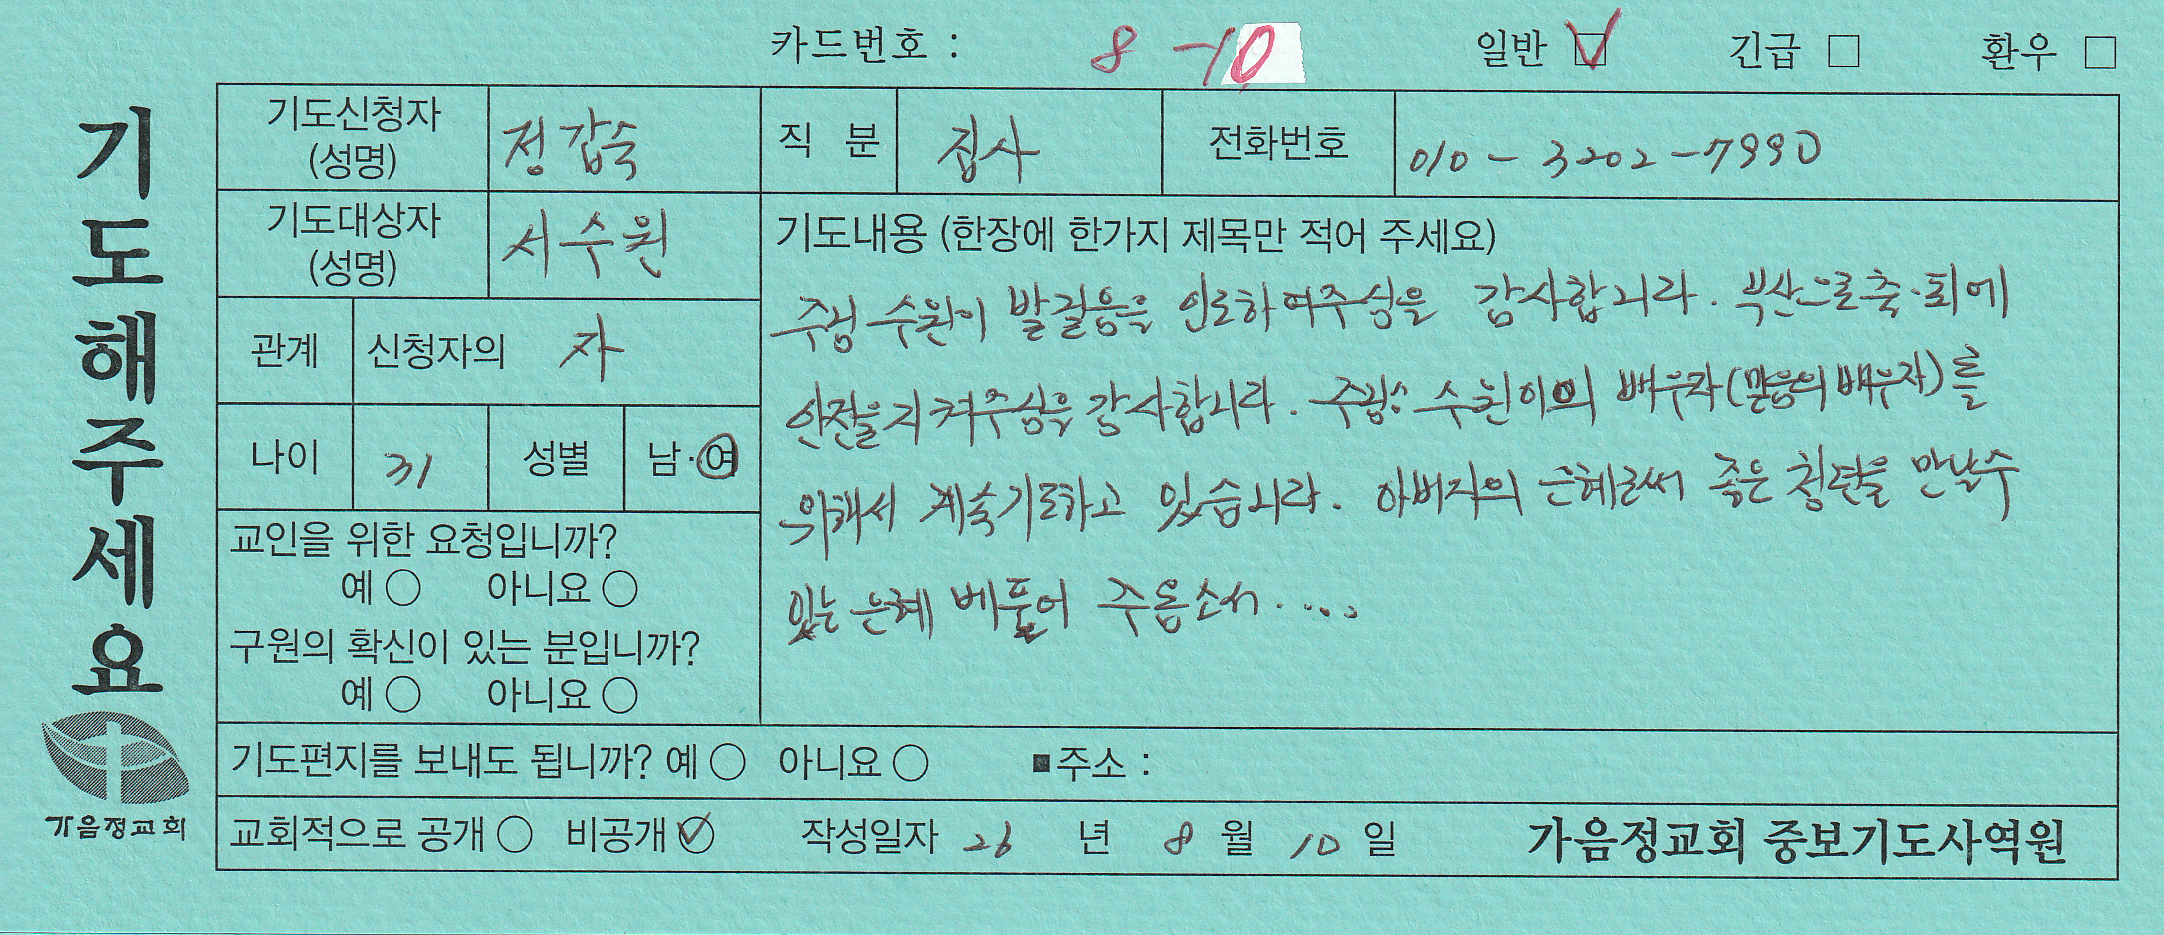 카드번호 : 8-10 일반 ☑ 긴급 □ 환우 □
기도해주세요
기도신청자 (성명) 정갑숙 직 분 집사 전화번호 010-3202-7990
기도대상자 (성명) 서수원
관계 신청자의 자
나이 31 성별 남·여
교인을 위한 요청입니까?
예 ○ 아니요 ○
구원의 확신이 있는 분입니까?
예 ○ 아니요 ○
기도내용 (한장에 한가지 제목만 적어 주세요)
주님 수원이 발걸음을 인도하여주심을 감사합니다. 부산으로 출·퇴에
안전을 지켜주심을 감사합니다. 주님 수원이의 배우자(믿음의 배우자)를
위해서 계속기도하고 있습니다. 아버지의 은혜로써 좋은 청년을 만날수
있는 은혜 베풀어 주옵소서.....
기도편지를 보내도 됩니까? 예 ○ 아니요 ○ ■주소 :
교회적으로 공개 ○ 비공개 ☑ 작성일자 26 년 8 월 10 일 가음정교회 중보기도사역원
가음정교회